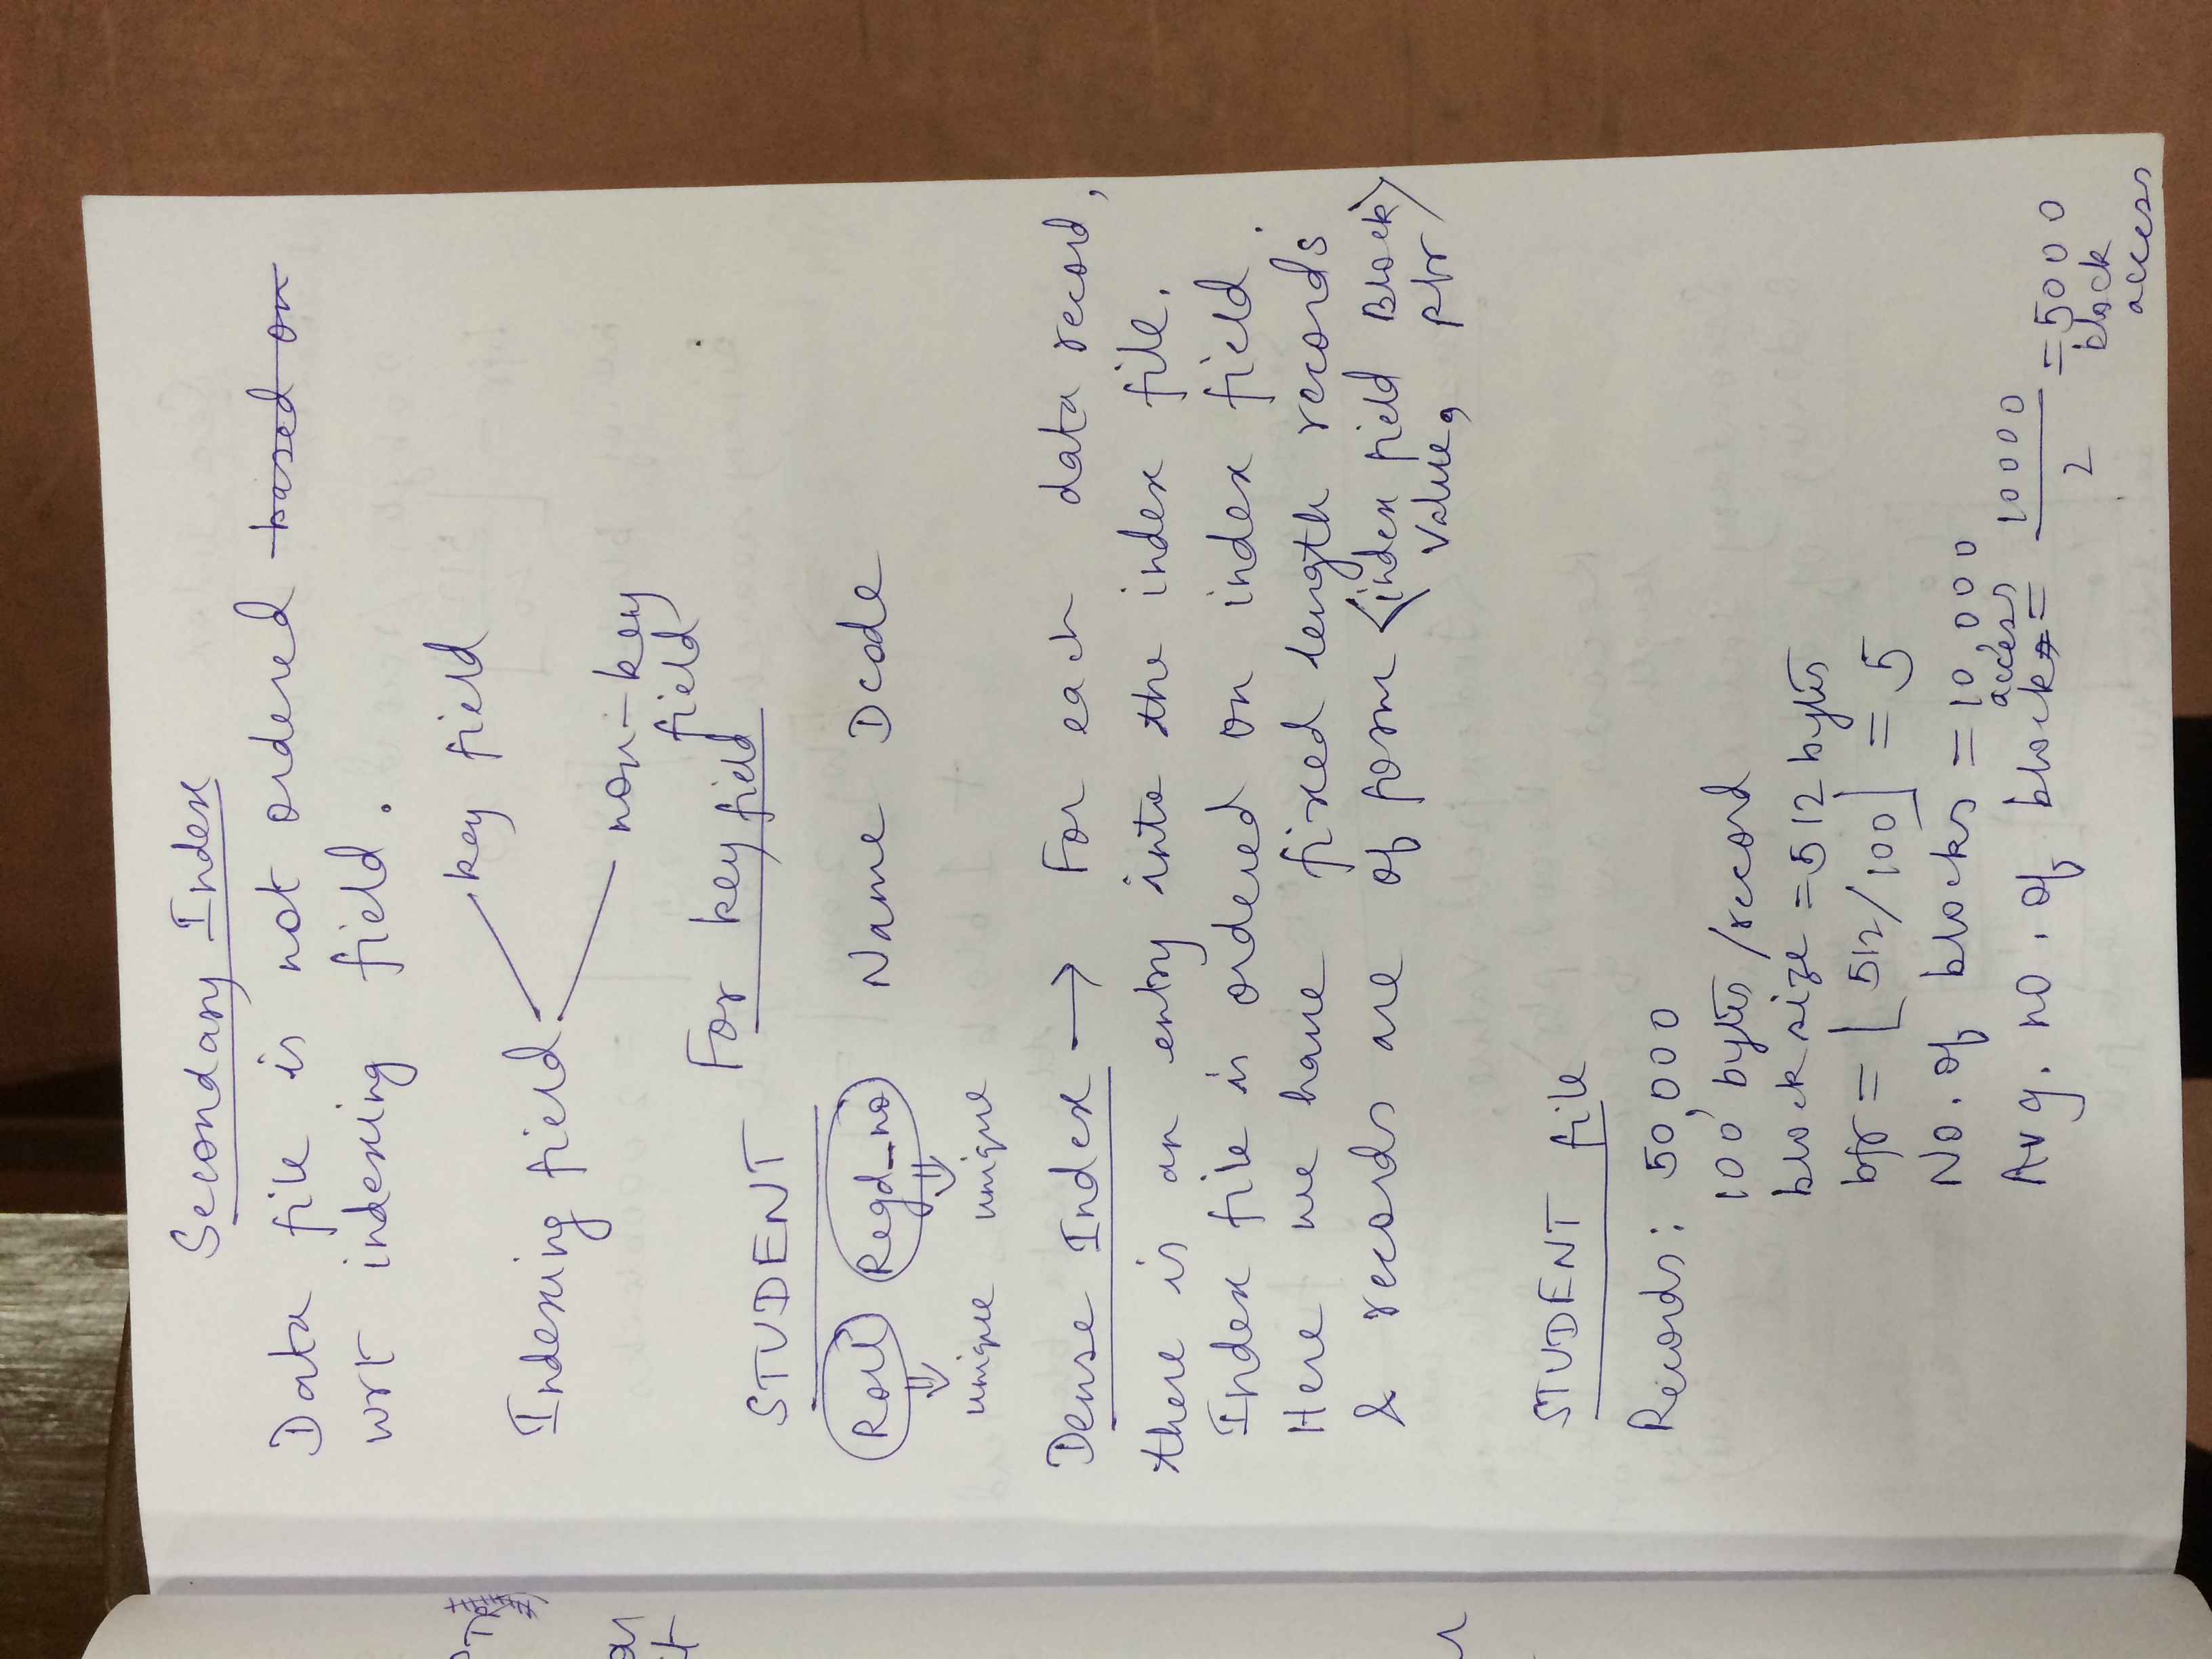 Secondary Index
Data file is not ordered based on
wrt indexing field.
key field
Indexing field
non-key
field
For key field
STUDENT
Roll Regd_no Name Dcode
unique unique
Dense Index → For each data record,
there is an entry into the index file.
Index file is ordered on index field.
Here we have fixed length records
& records are of form <index field Block>
Value, ptr
STUDENT file
Records: 50,000
100 bytes/record
block size = 512 bytes
bfr = ⌊512/100⌋ = 5
No. of blocks = 10,000
access
Avg. no. of block = 10000/2 = 5000
block
access
ar
it